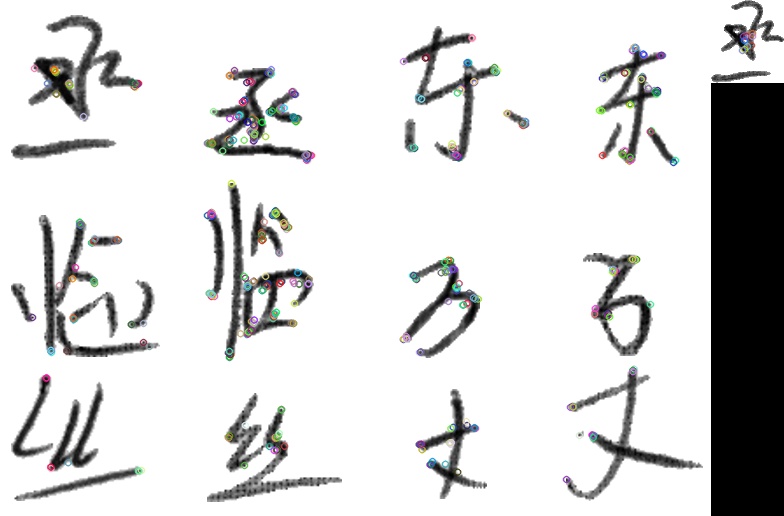 丞 丞 东 东 丞
临 临 万 万
丝 丝 丈 丈